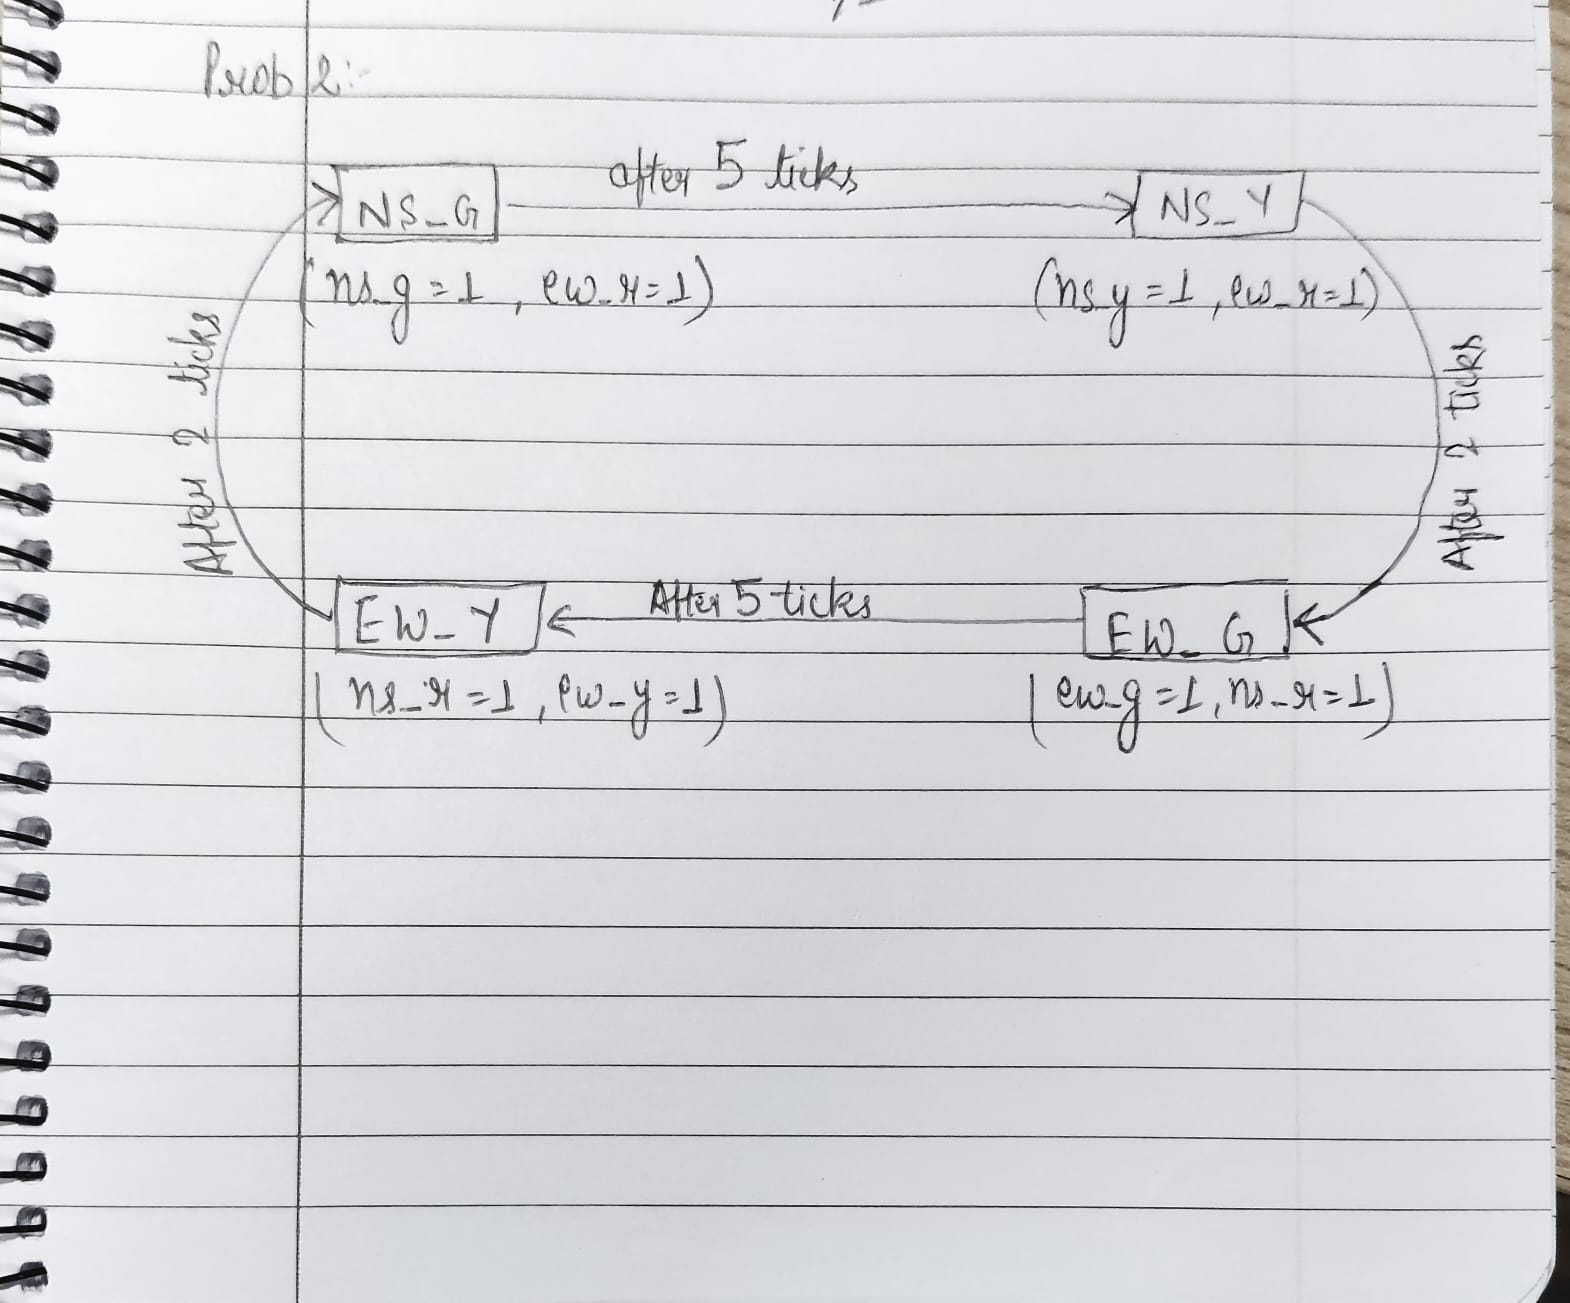 Prob 2:-
after 5 ticks
NS_G
NS_Y
(ns_g = 1 , ew_r = 1)
(ns_y = 1 , ew_r = 1)
After 2 ticks
After 2 ticks
After 5 ticks
EW_Y
EW_G
(ns_r = 1 , ew_y = 1)
(ew_g = 1, ns_r = 1)